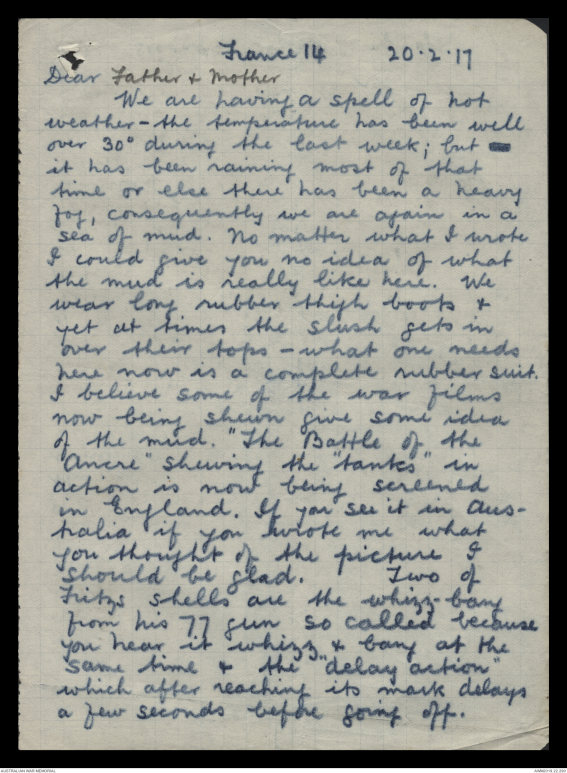 France 14 20.2.17
Dear Father & Mother
We are having a spell of hot
weather - the temperature has been well
over 30° during the last week; but
it has been raining most of that
time or else there has been a heavy
fog, consequently we are again in a
sea of mud. No matter what I wrote
I could give you no idea of what
the mud is really like here. We
wear long rubber thigh boots &
yet at times the slush gets in
over their tops - what one needs
here now is a complete rubber suit.
I believe some of the war films
now being shewn give some idea
of the mud. "The Battle of the
Ancre" shewing the "tanks" in
action is now being screened
in England. If you see it in Aus-
tralia if you wrote me what
you thought of the picture I
should be glad. Two of
Fritzs shells are the whizz-bang
from his 77 gun so called because
you hear it whizz & bang at the
same time & the "delay action"
which after reaching its mark delays
a few seconds before going off.
AUSTRALIAN WAR MEMORIAL